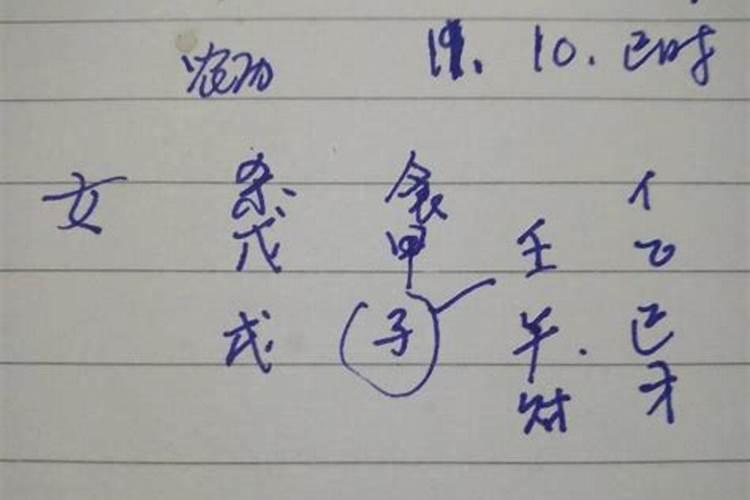 农历 11. 10. 巳时
女 杀 食 亻
戊 甲 壬 乙
戌 子 午. 巳
财 才